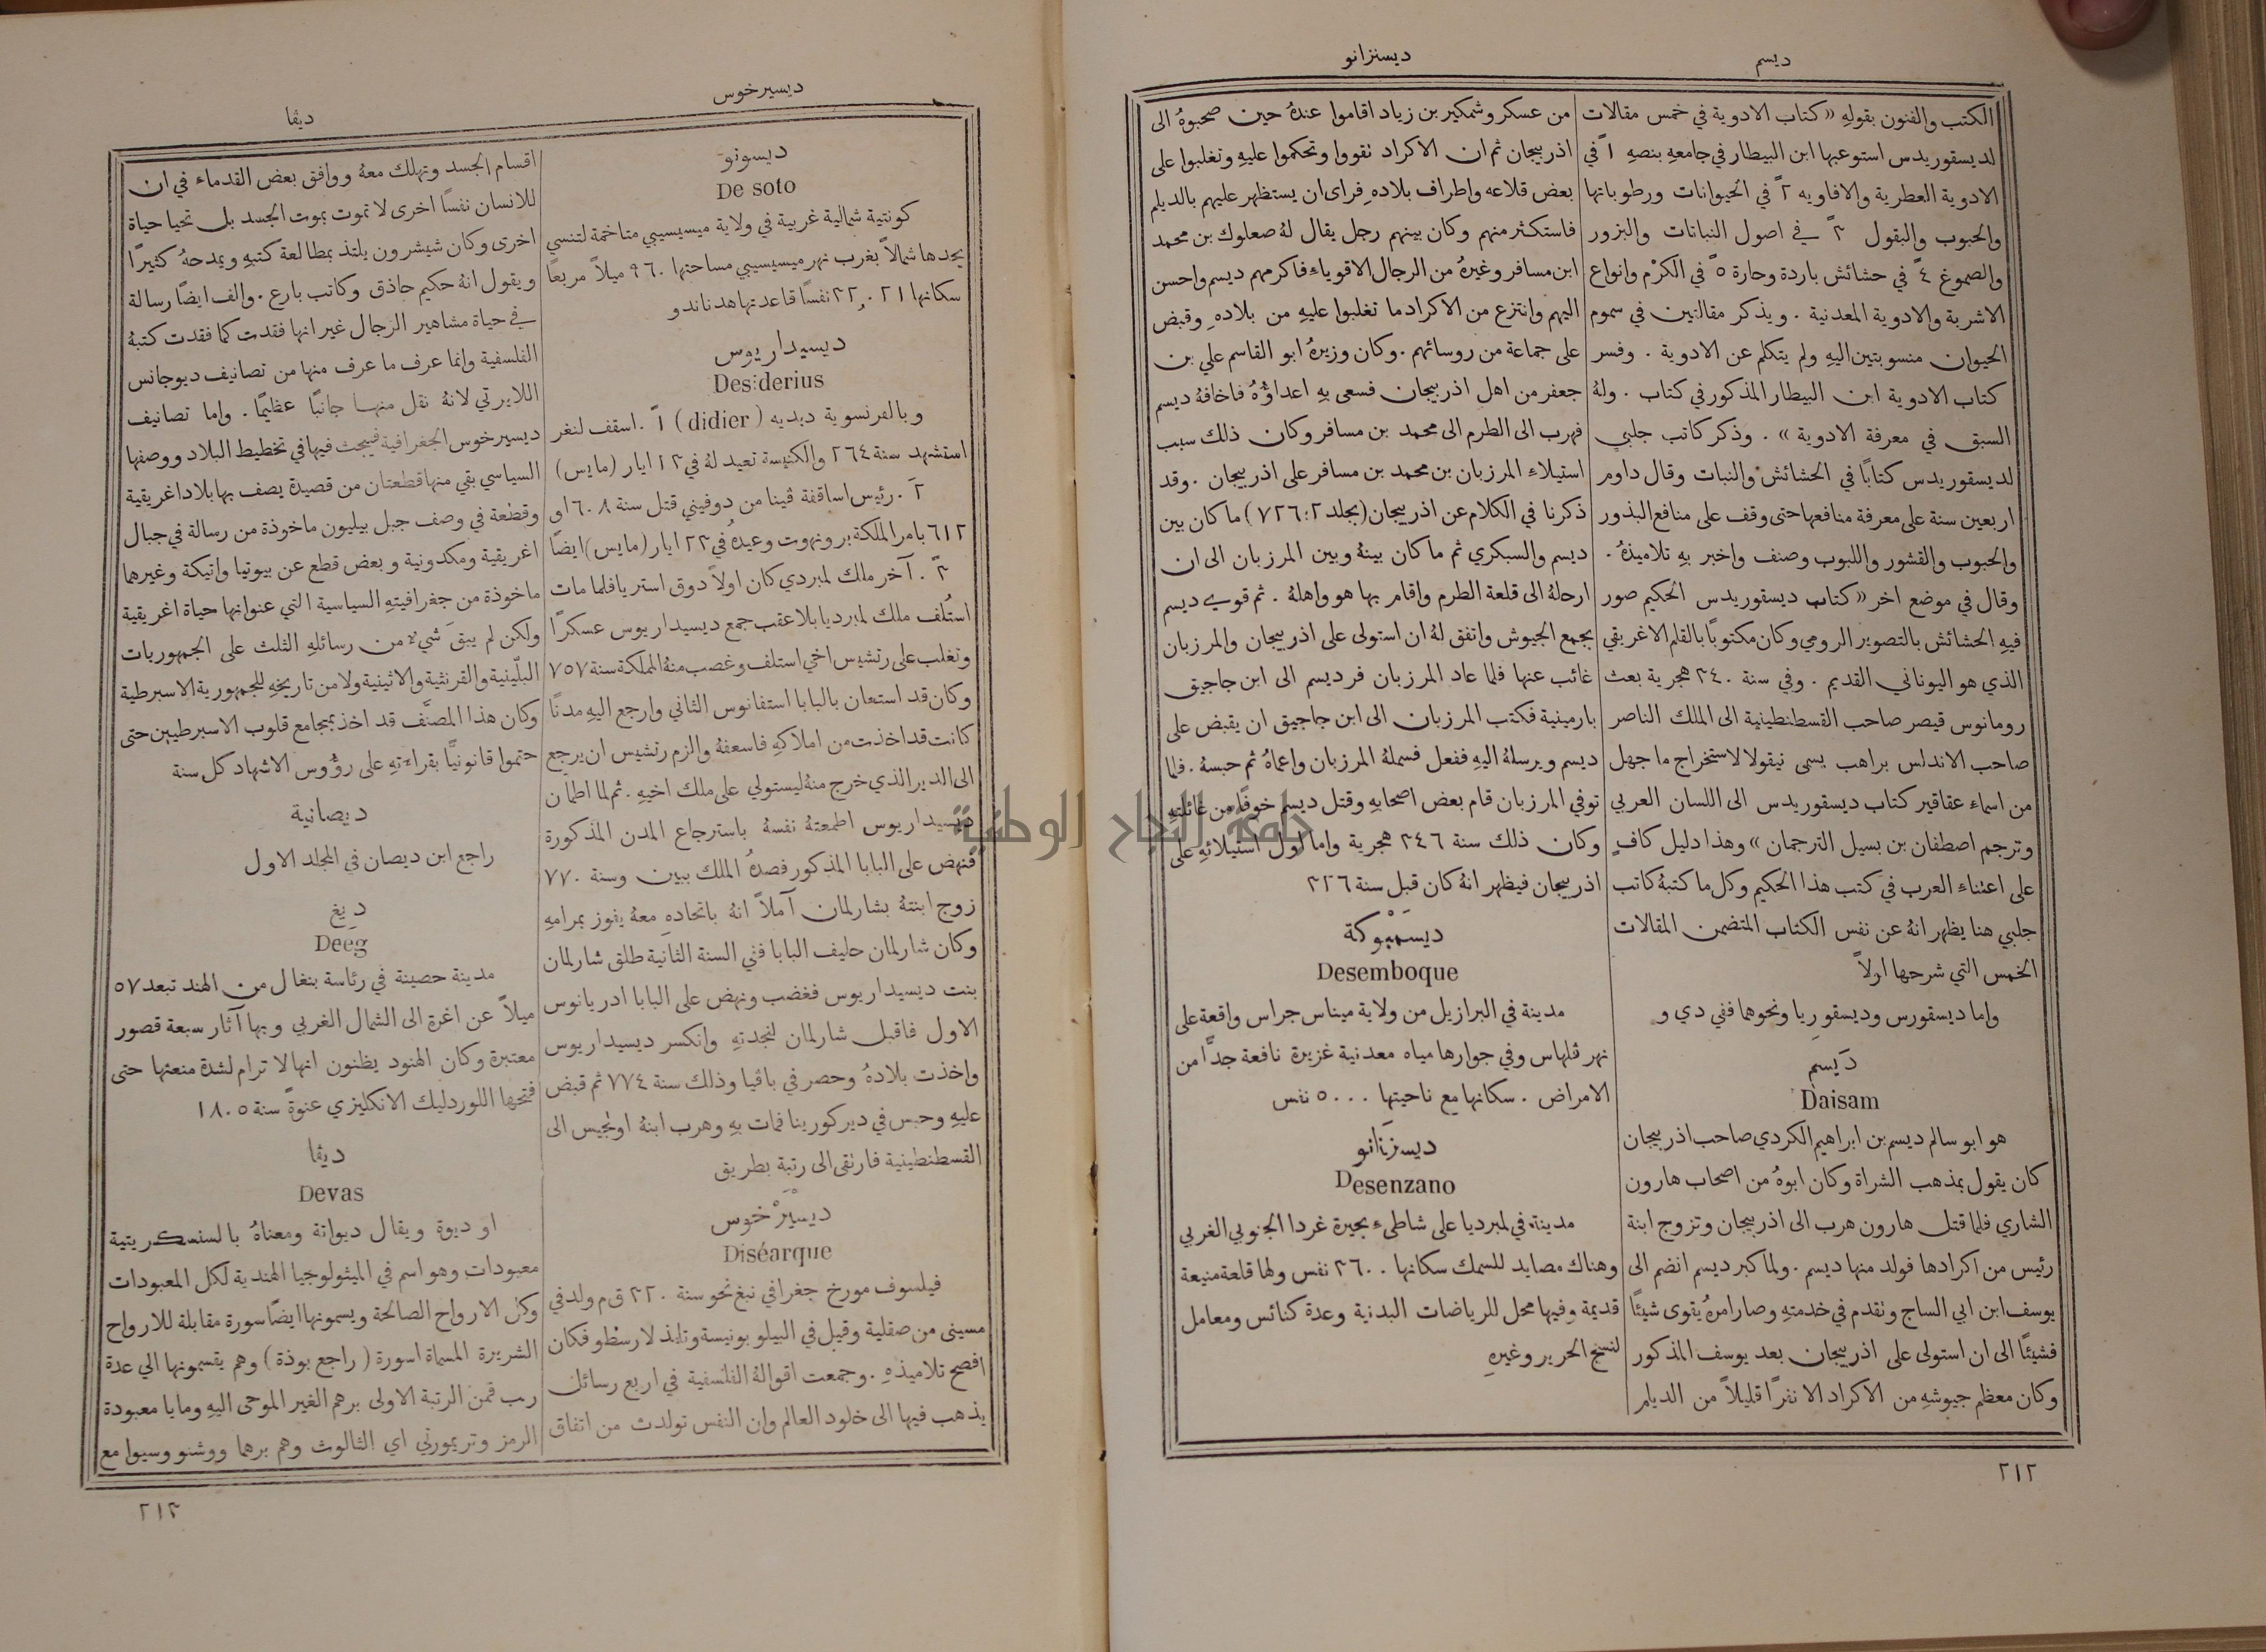 ديسم
ديسنزانو
الكتب والفنون بقولهِ «كتاب الادوية في خمس مقالات
لديسقوريدس استوعبها ابن البيطار في جامعهِ بنصهِ ١ً في
الادوية العطرية والافاويه ٢ً في الحيوانات ورطوباتها
والحبوب والبقول ٣ً في اصول النباتات والبزور
والصموغ ٤ً في حشائش باردة وحارة ٥ً في الكرْم وانواع
الاشربة والادوية المعدنية . ويذكر مقالتين في سموم
الحيوان منسوبتين اليهِ ولم يتكلم عن الادوية . وفسر
كتاب الادوية ابن البيطار المذكور في كتاب . ولهُ
السبق في معرفة الادوية» . وذكر كاتب جلبي
لديسقوريدس كتابًا في الحشائش والنبات وقال داوم
اربعين سنة على معرفة منافعها حتى وقف على منافع البذور
والحبوب والقشور واللبوب وصنف واخبر بهِ تلاميذهُ .
وقال في موضع اخر «كتاب ديسقوريدس الحكيم صور
فيهِ الحشائش بالتصوير الرومي وكان مكتوبًا بالقلم الاغريقي
الذي هو اليوناني القديم . وفي سنة ٣٤٠ هجرية بعث
رومانوس قيصر صاحب القسطنطينية الى الملك الناصر
صاحب الاندلس براهب يسمى نيقولا لاستخراج ما جهل
من اسماء عقاقير كتاب ديسقوريدس الى اللسان العربي
وترجم اصطفان بن بسيل الترجمان» وهذا دليل كافٍ
على اعتناء العرب في كتب هذا الحكيم وكل ما كتبهُ كاتب
جلبي هنا يظهر انهُ عن نفس الكتاب المتضمن المقالات
الخمس التي شرحها اولاً
واما ديسقورس وديسقوريا ونحوهما ففي دي و
دَيسم
Daisam
هو ابو سالم ديسم بن ابراهيم الكردي صاحب اذربيجان
كان يقول بمذهب الشراة وكان ابوهُ من اصحاب هارون
الشاري فلما قتل هارون هرب الى اذربيجان وتزوج ابنة
رئيس من اكرادها فولد منها ديسم . ولما كبر ديسم انضم الى
يوسف ابن ابي الساج وتقدم في خدمتهِ وصار امرهُ يقوى شيئًا
فشيئًا الى ان استولى على اذربيجان بعد يوسف المذكور
وكان معظم جيوشهِ من الاكراد الا نفرًا قليلاً من الديلم
من عسكر وشمكير بن زياد اقاموا عندهُ حين صحبوهُ الى
اذربيجان ثم ان الاكراد تقووا وتحكموا عليهِ وتغلبوا على
بعض قلاعه واطراف بلادهِ فراى ان يستظهر عليهم بالديلم
فاستكثر منهم وكان بينهم رجل يقال لهُ صعلوك بن محمد
ابن مسافر وغيرهُ من الرجال الاقوياء فاكرمهم ديسم واحسن
اليهم وانتزع من الاكراد ما تغلبوا عليهِ من بلادهِ وقبض
على جماعة من روسائهم . وكان وزيرهُ ابو القاسم علي بن
جعفر من اهل اذربيجان فسعى بهِ اعداؤهُ فاخافهُ ديسم
فهرب الى الطرم الى محمد بن مسافر وكان ذلك سبب
استيلاء المرزبان بن محمد بن مسافر على اذربيجان . وقد
ذكرنا في الكلام عن اذربيجان (مجلد ٢ : ٧٢٦) ما كان بين
ديسم والسبكري ثم ما كان بينهُ وبين المرزبان الى ان
ارحلهُ الى قلعة الطرم واقام بها هو واهلهُ . ثم قوي ديسم
بجمع الجيوش واتفق لهُ ان استولى على اذربيجان والمرزبان
غائب عنها فلما عاد المرزبان فر ديسم الى ابن جاجيق
بارمينية فكتب المرزبان الى ابن جاجيق ان يقبض على
ديسم ويرسلهُ اليهِ ففعل فسملهُ المرزبان واعماهُ ثم حبسهُ . فلما
توفي المرزبان قام بعض اصحابهِ وقتل ديسم خوفًا من غائلتهِ
وكان ذلك سنة ٣٤٦ هجرية واما اول استيلائهِ على
اذربيجان فيظهر انهُ كان قبل سنة ٣٢٦
ديسَمْبُوكة
Desemboque
مدينة في البرازيل من ولاية ميناس جراس واقعة على
نهر ڤلهاس وفي جوارها مياه معدنية غزيرة نافعة جدًّا من
الامراض . سكانها مع ناحيتها ٥٠٠٠ نفس
ديسنزَانو
Desenzano
مدينة في لمبرديا على شاطىء بحيرة غردا الجنوبي الغربي
وهناك مصايد للسمك سكانها ٣٦٠٠ نفس ولها قلعة منيعة
قديمة وفيها محل للرياضات البدنية وعدة كنائس ومعامل
لنسج الحرير وغيرهِ
٢١٢
جامعة النجاح الوطنية
ديسيرخوس
ديڤا
ديسوتو
De soto
كونتية شمالية غربية في ولاية ميسيسيبي متاخمة لتنسي
يحدها شمالاً بغرب نهر ميسيسيبي مساحتها ٩٦٠ ميلاً مربعًا
سكانها ٣٢٠٢١ نفسًا قاعدتها هدناندو
ديسيداريوس
Desiderius
وبالفرنسوية ديديه (didier) ١ً . اسقف لنغر
استشهد سنة ٢٦٤ والكنيسة تعيد لهُ في ١٣ ايار (مايس)
٢ً . رئيس اساقفة ڤينا من دوفيني قتل سنة ٦٠٨ او
٦١٢ بامر الملكة برونهوت وعيدهُ في ٢٣ ايار (مايس) ايضًا
٣ً . آخر ملك لمبردي كان اولاً دوق استريا فلما مات
استُلف ملك لمبرديا بلا عقب جمع ديسيداريوس عسكرًا
وتغلب على رتشيس اخي استلف وغصب منهُ المملكة سنة ٧٥٧
وكان قد استعان بالبابا استفانوس الثاني وارجع اليهِ مدنًا
كانت قد اخذت من املاكهِ فاسعفهُ والزم رتشيس ان يرجع
الى الدير الذي خرج منهُ ليستولي على ملك اخيهِ . ثم لما اطمان
ديسيداريوس اطمعتهُ نفسهُ باسترجاع المدن المذكورة
فنهض على البابا المذكور فصدهُ الملك ببين وسنة ٧٧٠
زوج ابنتهُ بشارلمان آملاً انهُ باتحادهِ معهُ يفوز بمرامهِ
وكان شارلمان حليف البابا ففي السنة الثانية طلق شارلمان
بنت ديسيداريوس فغضب ونهض على البابا ادريانوس
الاول فاقبل شارلمان لنجدتهِ وانكسر ديسيداريوس
واخذت بلادهُ وحصر في باڤيا وذلك سنة ٧٧٤ ثم قبض
عليهِ وحبس في دير كوربنا فمات بهِ وهرب ابنهُ اولجيس الى
القسطنطينية فارتقى الى رتبة بطريق
ديسيَرْخوس
Diséarque
فيلسوف مورخ جغرافي نبغ نحو سنة ٣٢٠ ق م ولد في
مسينى من صقلية وقيل في البيلوبونيسة وتلمذ لارسطو فكان
افصح تلاميذهِ . وجمعت اقوالهُ الفلسفية في اربع رسائل
يذهب فيها الى خلود العالم وان النفس تولدت من اتفاق
اقسام الجسد وتهلك معهُ ووافق بعض القدماء في ان
للانسان نفسًا اخرى لا تموت بموت الجسد بل تحيا حياة
اخرى وكان شيشرون يلتذ بمطالعة كتبهِ ويمدحهُ كثيرًا
ويقول انهُ حكيم حاذق وكاتب بارع . والف ايضًا رسالة
في حياة مشاهير الرجال غير انها فقدت كما فقدت كتبهُ
الفلسفية وانما عرف ما عرف منها من تصانيف ديوجانس
اللايرتي لانهُ نقل منها جانبًا عظيمًا . واما تصانيف
ديسيرخوس الجغرافية فيبحث فيها في تخطيط البلاد ووصفها
السياسي بقي منها قطعتان من قصيدة يصف بها بلاد اغريقية
وقطعة في وصف جبل بيليون ماخوذة من رسالة في جبال
اغريقية ومكدونية وبعض قطع عن بيوتيا واتيكة وغيرهما
ماخوذة من جغرافيتهِ السياسية التي عنوانها حياة اغريقية
ولكن لم يبقَ شيء من رسائلهِ الثلث على الجمهوريات
البلّينية والقرنثية والاثينية ولا من تاريخهِ للجمهورية الاسبرطية
وكان هذا المصنَّف قد اخذ بمجامع قلوب الاسبرطيين حتى
حتموا قانونيًّا بقراءتهِ على رؤوس الاشهاد كل سنة
ديصانية
راجع ابن ديصان في المجلد الاول
دِيغ
Deeg
مدينة حصينة في رئاسة بنغال من الهند تبعد ٥٧
ميلاً عن اغرة الى الشمال الغربي وبها آثار سبعة قصور
معتبرة وكان الهنود يظنون انها لا ترام لشدة منعتها حتى
فتحها اللورد ليك الانكليزي عنوةً سنة ١٨٠٥
ديڤا
Devas
او ديوة ويقال ديوانة ومعناهُ بالسنسكريتية
معبودات وهو اسم في الميثولوجيا الهندية لكل المعبودات
وكل الارواح الصالحة ويسمونها ايضًا سورة مقابلة للارواح
الشريرة المسماة اسورة (راجع بوذة) وهم يقسمونها الى عدة
رتب فمن الرتبة الاولى برهم الغير الموحى اليهِ ومايا معبودة
الرمز وتريمورتي اي الثالوث وهم برهما ووشنو وسيوا مع
٢١٣